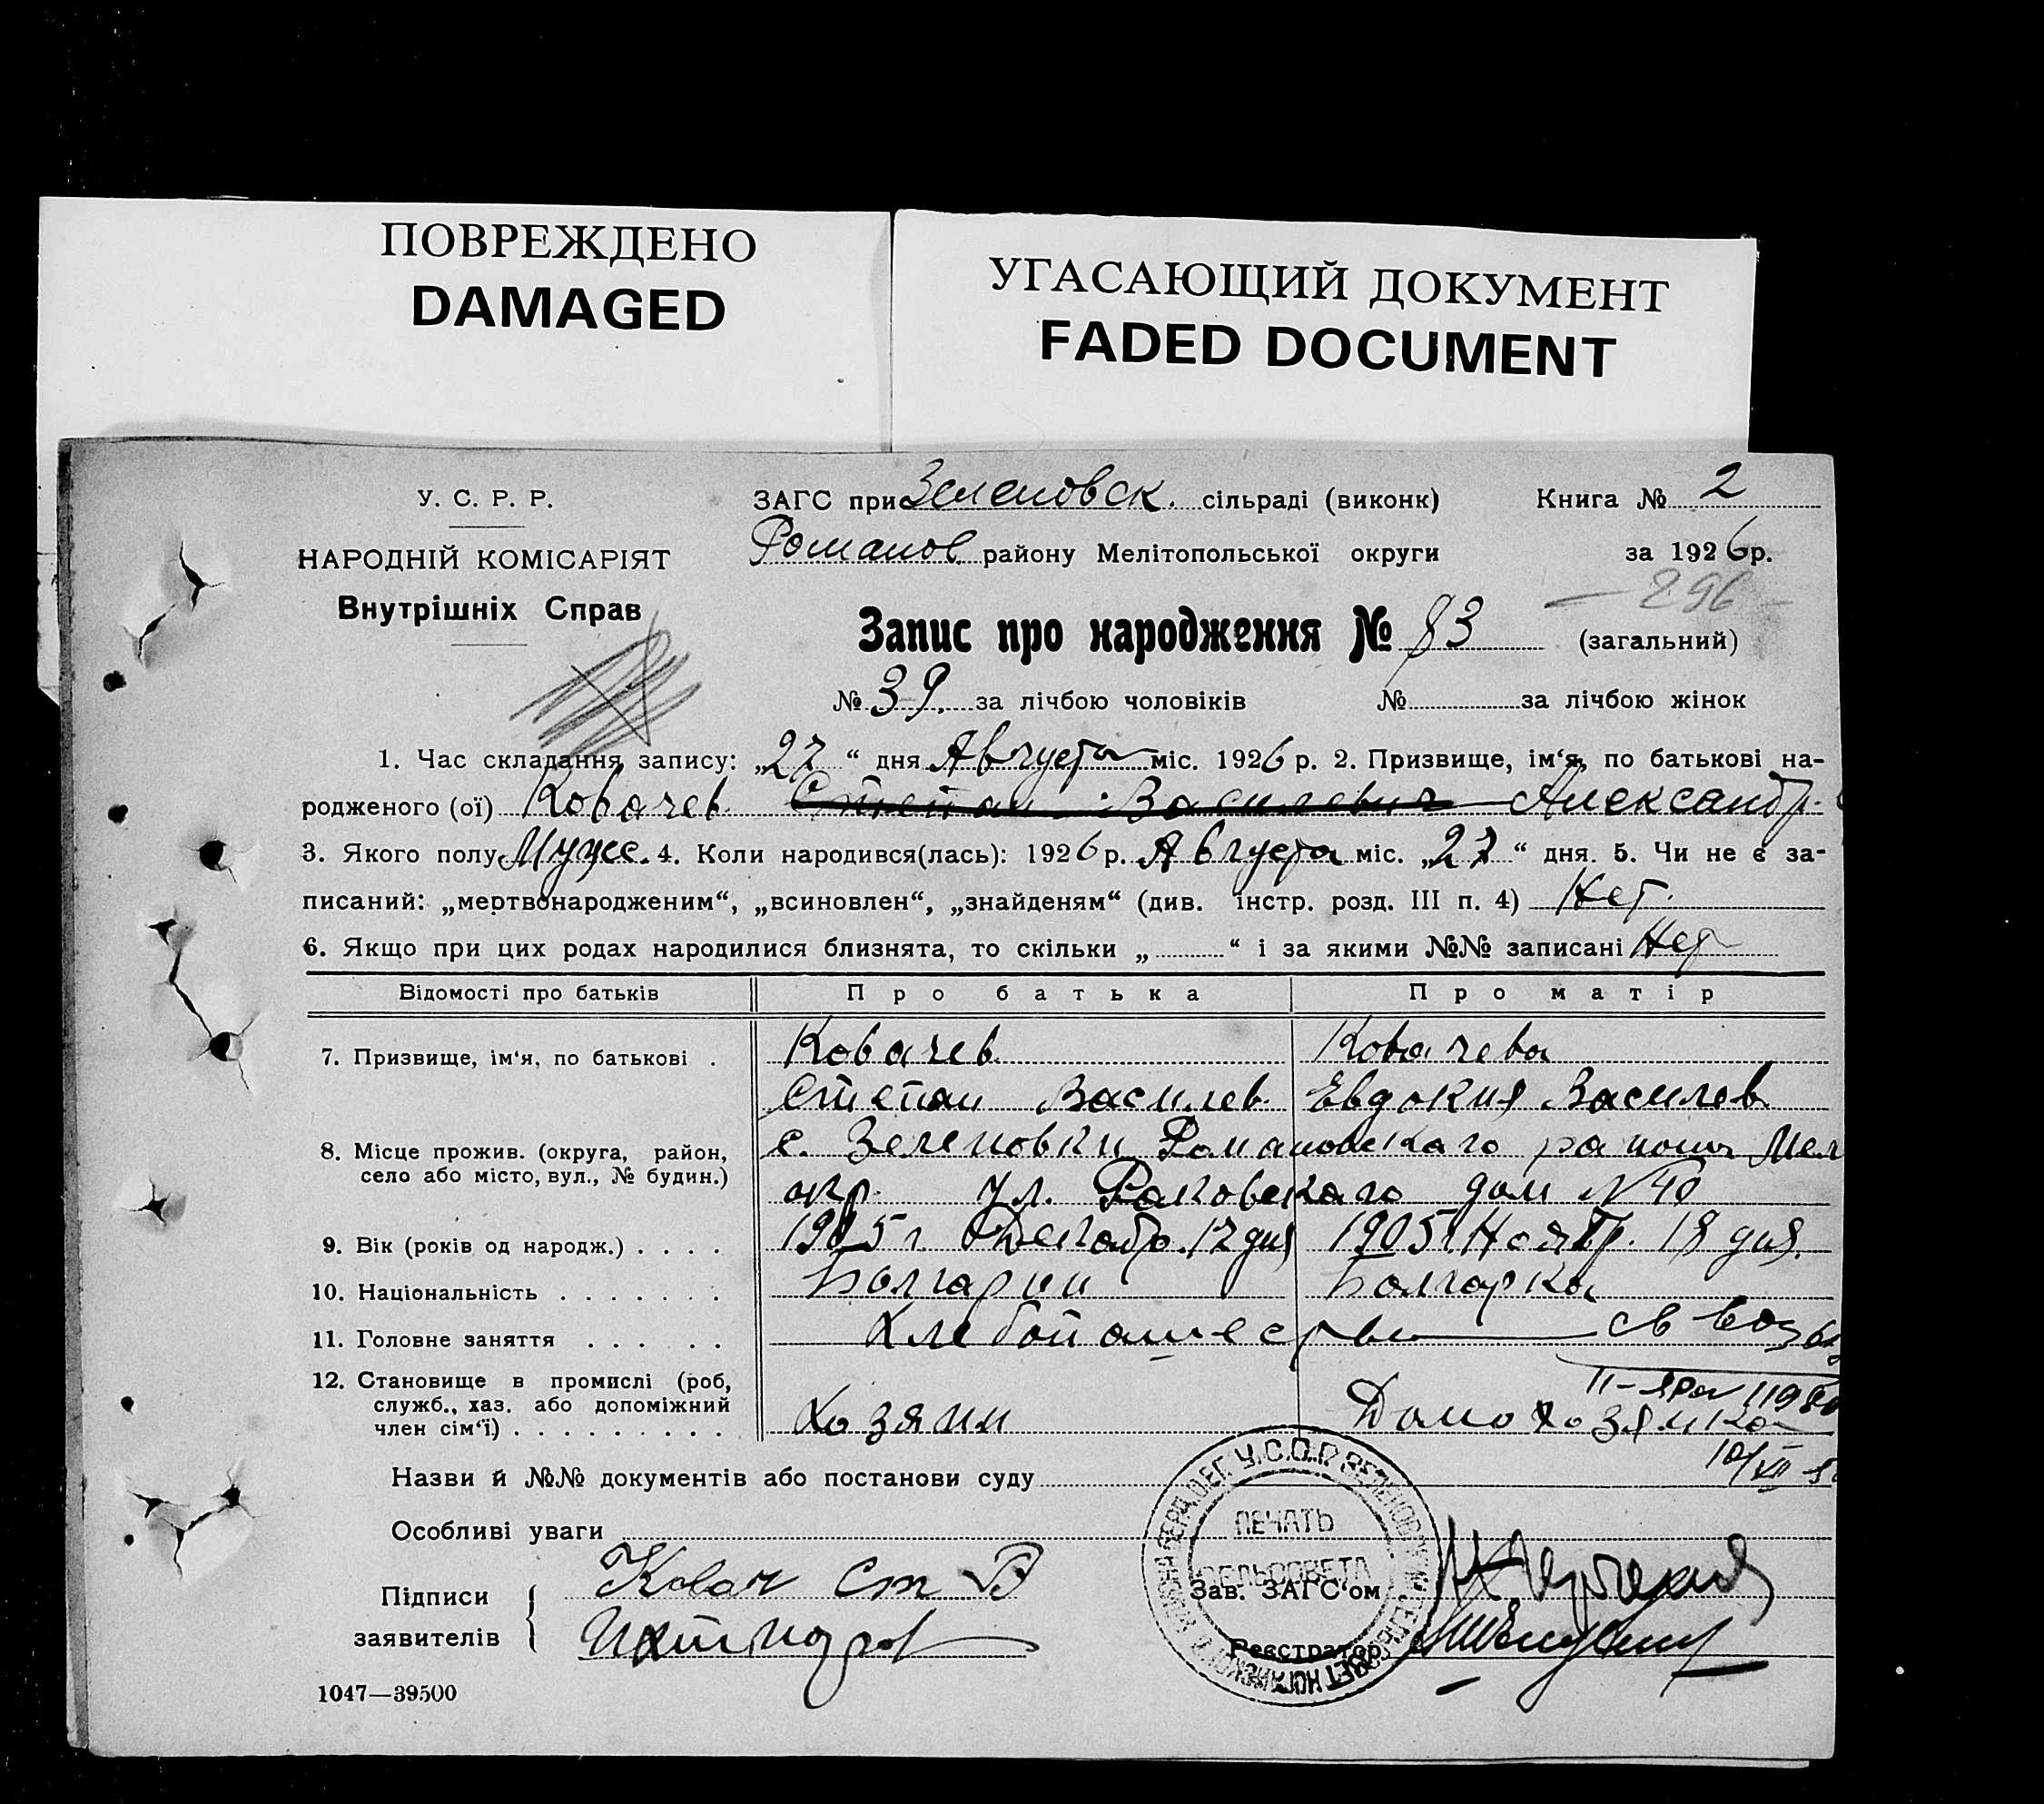 ПОВРЕЖДЕНО
DAMAGED
УГАСАЮЩИЙ ДОКУМЕНТ
FADED DOCUMENT
У. С. Р. Р.
НАРОДНІЙ КОМІСАРІЯТ
Внутрішніх Справ
ЗАГС при Зеленовск. сільраді (виконк) Книга № 2
Романов. району Мелітопольської округи за 1926 р.
296
Запис про народження № 83 (загальний)
№ 39. за лічбою чоловіків № за лічбою жінок
1. Час складання запису: „27“ дня Августа міс. 1926 р. 2. Призвище, ім‘я, по батькові на-
родженого (ої) Ковачев Степан Василевич Александр.
3. Якого полу Мужс. 4. Коли народився(лась): 1926 р. Августа міс. „27“ дня. 5. Чи не є за-
писаний: „мертвонародженим“, „всиновлен“, „знайденям“ (див. інстр. розд. III п. 4) Нет.
6. Якщо при цих родах народилися близнята, то скільки „ “ і за якими №№ записані Нет
Відомості про батьків Про батька Про матір
7. Призвище, ім‘я, по батькові . Ковачев Ковачева
Степан Василев. Евдокия Василев
8. Місце прожив. (округа, район, село або місто, вул., № будин.) с. Зеленовки Романовскаго района Мел
окр. ул. Раковскаго дом №
9. Вік (років од народж.) . . . . 1905 г. Декабр. 12 дня 1905 г. Ноябр. 18 дня.
10. Національність . . . . . . . Болгарин Болгарка
11. Головне заняття . . . . . . Хлебопашество
12. Становище в промислі (роб, служб., хаз. або допоміжний член сім‘ї) . . . . . . . . . Хозяин Домохозяйка
Назви й №№ документів або постанови суду
Особливі уваги
ПЕЧАТЬ
СЕЛЬСОВЕТА
Підписи
заявителів
Ковач Ст В
Зав. ЗАГС‘ом
Реєстратор
1047—39500